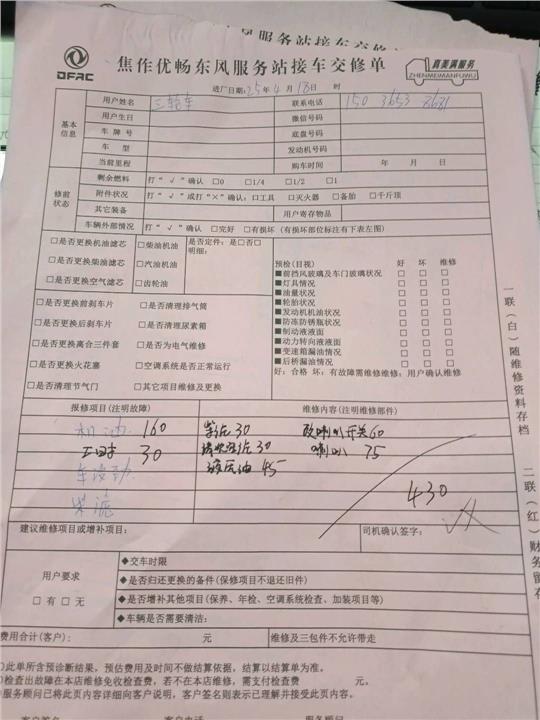 焦作优畅东风服务站接车交修单
DFAC
真美满服务
ZHENMEIMANFUWU
进厂日期:25年4月18日 时
基本信息
用户姓名 三轮车 联系电话 150 3653 8681
用户生日 微信号码
车牌号 底盘号码
车型 发动机号码
当前里程 购车时间 年 月 日
修前状态
剩余燃料 打“√”确认 □0 □1/4 □1/2 □1
附件状况 打“√”或打“×”确认:□工具 □灭火器 □备胎 □千斤顶
其它装备 用户寄存物品
车辆外部情况 打“√”确认 □完好 □有损坏 (有损坏部位标注有下表左图)
□是否更换机油滤芯 □柴油机油 是否定件:是□否□
明细:
□是否更换柴油滤芯 □汽油机油
□是否更换空气滤芯 □齿轮油
□是否更换前刹车片 □是否清理排气筒
□是否更换后刹车片 □是否清理尿素箱
□是否更换离合三件套 □是否为电气维修
□是否更换火花塞 □空调系统是否正常运行
□是否清理节气门 □其它项目维修及更换
预检(目视) 好 坏 维修
■前挡风玻璃及车门玻璃状况 □ □ □
■灯具情况 □ □ □
■油量状况 □ □ □
■轮胎状况 □ □ □
■发动机机油状况 □ □ □
■防冻防锈瓶状况 □ □ □
■制动液液面 □ □ □
■动力转向液液面 □ □ □
■变速箱漏油情况 □ □ □
■后桥漏油情况 □ □ □
好:合格 坏:有故障需维修维修:用户确认维修
报修项目(注明故障) 维修内容(注明维修部件)
机油 160 柴滤 30 改喇叭开关60
工时 30 30 喇叭 75
车没劲 液压油 45
柴滤 430
建议维修项目或增补项目: 司机确认签字:
用户要求
□有□无
◆交车时限
◆是否归还更换的备件(保修项目不退还旧件)
◆是否增补其他项目(保养、年检、空调系统检查、加装项目等)
◆车辆是否需要清洁:
费用合计(客户): 元 维修及三包件不允许带走
①此单所含预诊断结果,预估费用及时间不做结算依据,结算以结算单为准。
检查出故障在本店维修免收检查费,若不在本店维修,需支付检查费 元。
服务顾问已将此页内容详细向客户说明,客户签名则表示已理解并接受此页内容。
客户签名 客户电话 服务顾问
一联(白)随维修资料存档
二联(红)财务留存